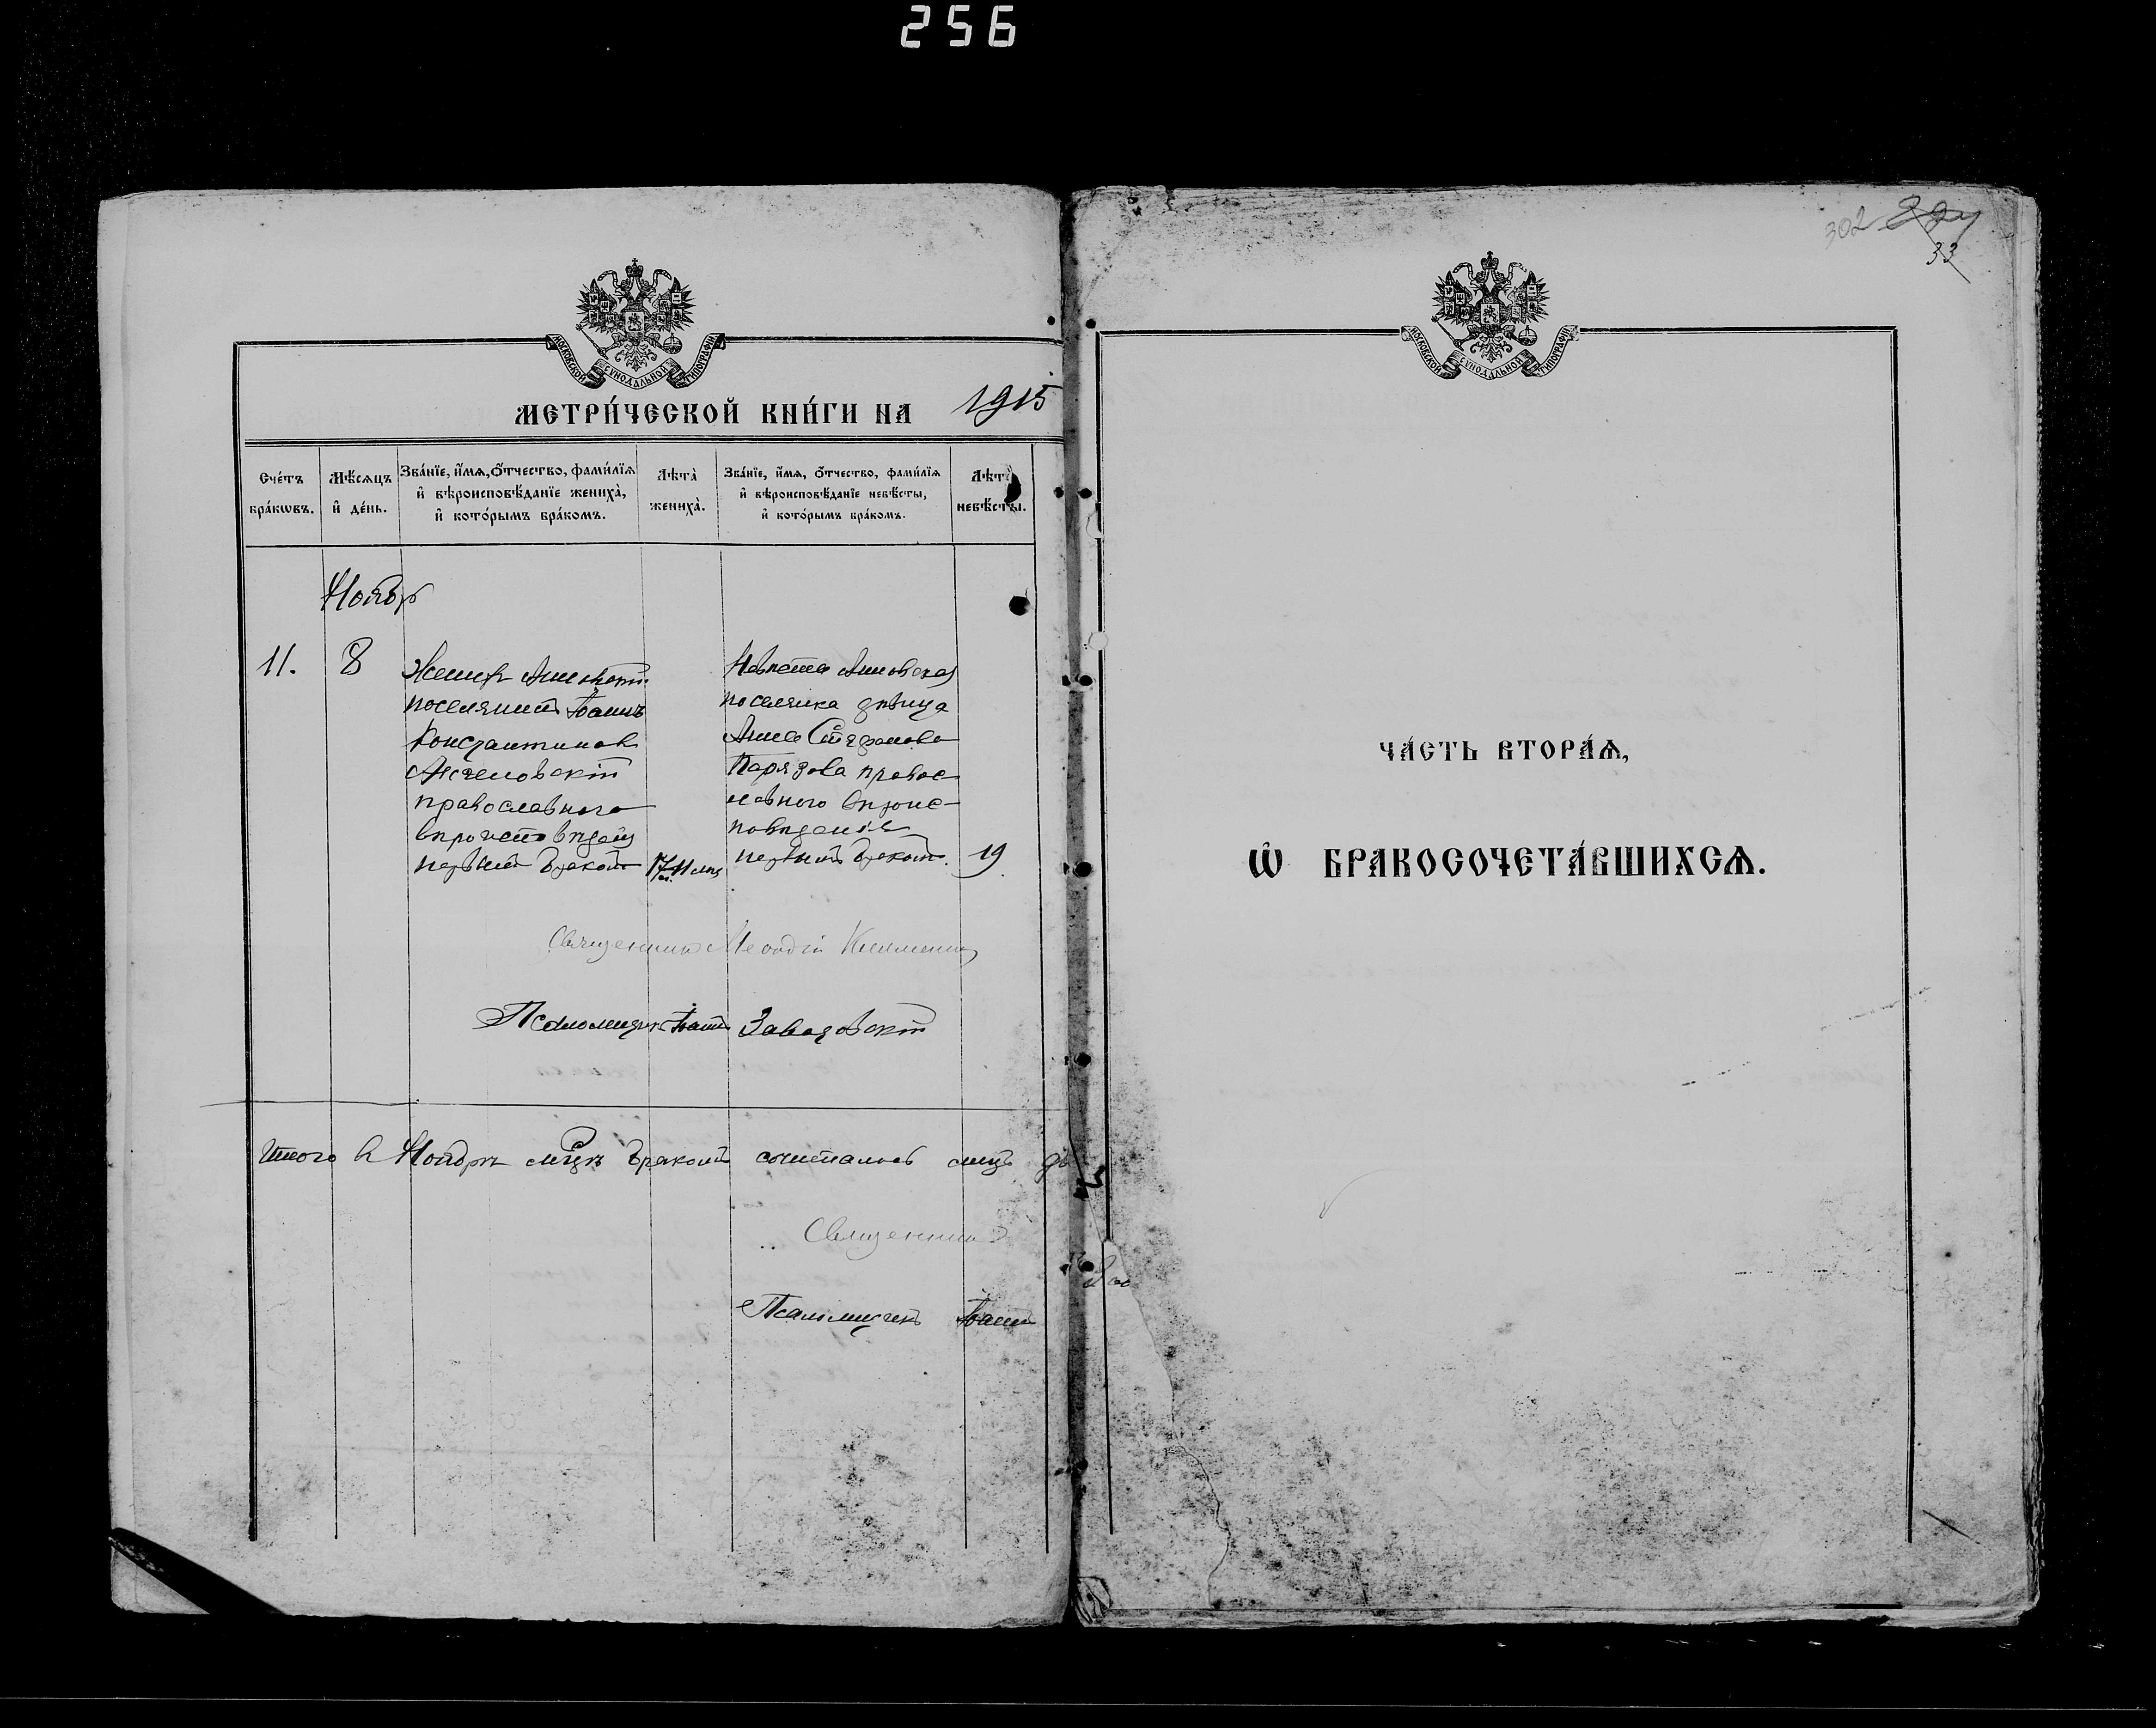 256
МОСКОВСКОЙ СѴНОДАЛЬНОЙ ТИПОГРАФІИ
МЕТРИ́ЧЕСКОЙ КНИ́ГИ НА 1915
Сче́тъ бра́кωвъ.
Мѣ́сяцъ и҆ де́нь.
Зва́нїе, и҆́мѧ, ѻ҆́тчество, фами́лїѧ
и҆ вѣроисповѣ́данїе жениха̀,
и҆ кото́рымъ бра́комъ.
Лѣта̀ жениха̀.
Зва́нїе, и҆́мѧ, ѻ҆́тчество, фами́лїѧ
и҆ вѣроисповѣ́данїе невѣ́сты,
и҆ кото́рымъ бра́комъ.
Лѣта̀ невѣ́сты.
Ноябрь
11.
8
Женихъ
поселянинъ Іоаннъ
Константиновъ
православнаго
первымъ бракомъ
17
Невѣста
поселянка дѣвица
Анна Стефанова
правос
лавного вѣроис-
повѣданія
первымъ бракомъ.
19
Священникъ
Псаломщикъ Іоаннъ Завадовскій
Итого в Ноябрѣ мцѣ бракомъ сочеталось лицъ
Священникъ
Псаломщикъ Іоаннъ
302
33
МОСКОВСКОЙ СѴНОДАЛЬНОЙ ТИПОГРАФІИ
ЧА́СТЬ ВТОРА́Ѧ,
Ѡ҆ БРАКОСОЧЕТА́ВШИХСѦ.